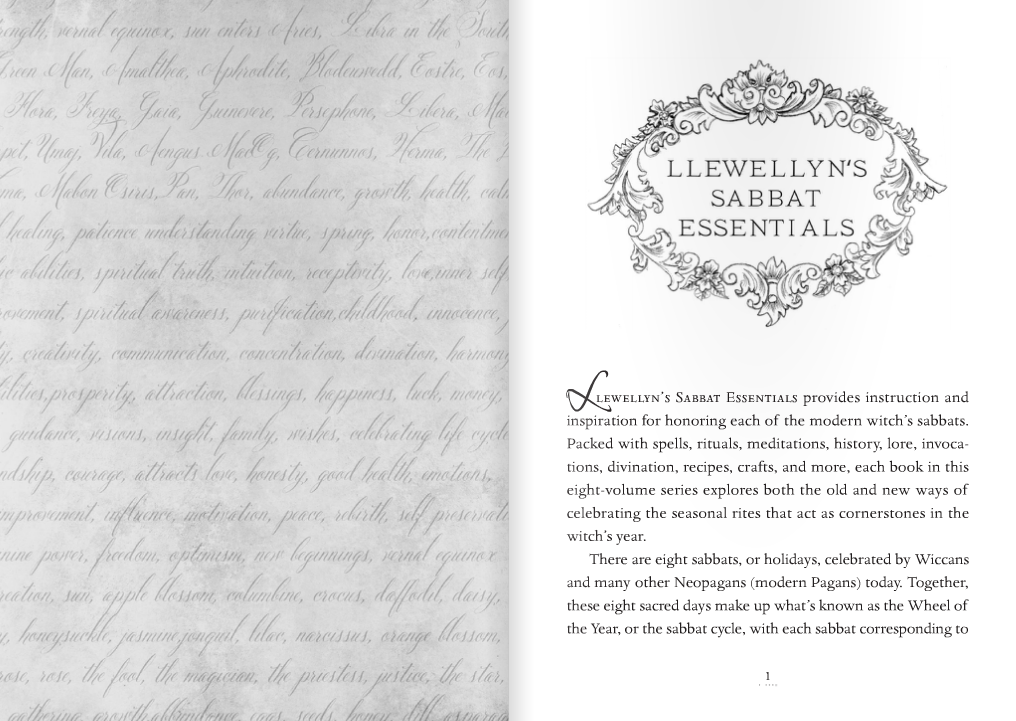 rength, vernal equinox, sun enters Aries, Libra in the South
Green Man, Amalthea, Aphrodite, Blodeuwedd, Eostre, Eos,
Flora, Freya, Gaia, Guinevere, Persephone, Libera, Ma
pet, Umaj, Vila, Aengus MacOg, Cernunnos, Herma, The
ma, Mabon Osiris, Pan, Thor, abundance, growth, health, ca
healing, patience understanding virtue, spring, honor, contentme
ic abilities, spiritual truth, intuition, receptivity, love, inner self
rovement, spiritual awareness, purification, childhood, innocence,
ty, creativity, communication, concentration, divination, harmon
ilities, prosperity, attraction, blessings, happiness, luck, money,
guidance, visions, insight, family, wishes, celebrating life cycle
ndship, courage, attracts love, honesty, good health, emotions,
mprovement, influence, motivation, peace, rebirth, self preservati
nine power, freedom, optimism, new beginnings, vernal equinox
reation, sun, apple blossom, columbine, crocus, daffodil, daisy,
y, honeysuckle, jasmine, jonquil, lilac, narcissus, orange blossom,
rose, rose, the fool, the magician, the priestess, justice, the star,
gathering, growth, abundance, eggs, seeds, honey, dill, asparagu
LLEWELLYN'S
SABBAT
ESSENTIALS
Llewellyn's Sabbat Essentials provides instruction and
inspiration for honoring each of the modern witch's sabbats.
Packed with spells, rituals, meditations, history, lore, invoca-
tions, divination, recipes, crafts, and more, each book in this
eight-volume series explores both the old and new ways of
celebrating the seasonal rites that act as cornerstones in the
witch's year.
There are eight sabbats, or holidays, celebrated by Wiccans
and many other Neopagans (modern Pagans) today. Together,
these eight sacred days make up what's known as the Wheel of
the Year, or the sabbat cycle, with each sabbat corresponding to
1